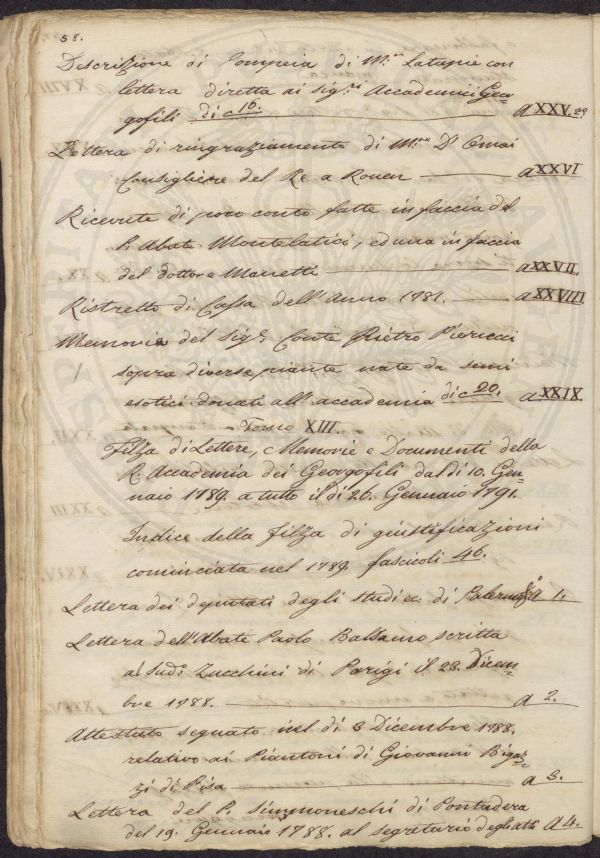 58.
Descrizione di Pompeia di M.r Latapie con
lettera diretta ai sig.ri Accademici Geor-
gofili di c 16. a XXV. 29
Lettera di ringraziamento di M.r D'
Consigliere del Re a Rouen a XXVI
Ricevute di poco conto fatte in faccia del
P. Abate Montelatici, ed una in faccia
del dottore Manetti a XXVII.
Ristretto di Cassa dell'Anno 1781. a XXVIII.
Memoria del sig.r Conte Pietro Pierucci
sopra diverse piante nate da semi
esotici donati all'accademia di c 20. a XXIX.
Tomo XIII.
Filza di Lettere, Memorie e Documenti della
R. Accademia dei Georgofili dal dì 10. Gen-
naio 1789. a tutto il dì 20. Gennaio 1791.
Indice della filza di giustificazioni
cominciata nel 1789. fascicoli 46.
Lettera dei deputati degli studi ec. di Palermo a 1.
Lettera dell'Abate Paolo Balsamo scritta
al sud.o Zucchini di Parigi il 23. Dicem-
bre 1788. a 2.
Attestato segnato nel dì 3 Dicembre 1788.
relativo ai Piantoni di Giovanni Bigaz-
zi di Pisa a 3.
Lettera del P. Simmoneschi di Pontadera
del 19. Gennaio 1788. al segretario degli atti a 4.